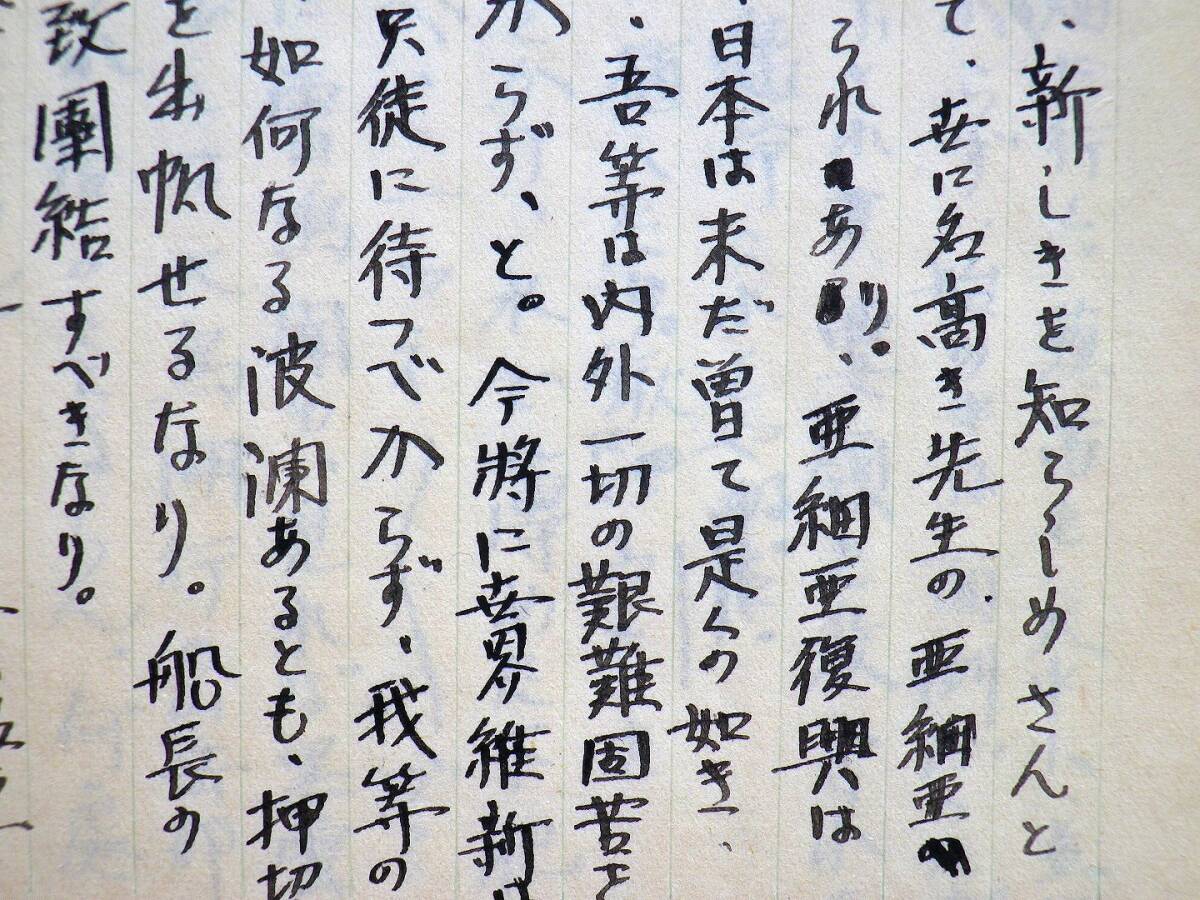 、新しきを知らしめさんと
て、世に名高き先生の、亜細亜の
られあり。、亜細亜復興は
、日本は未だ曽て是くの如き、
、吾等は内外一切の艱難固苦を
からず、と。今將に世界維新は
只徒に待つべからず、我等の
如何なる波瀾あるとも、押切
を出帆せるなり。船長の
致團結すべきなり。